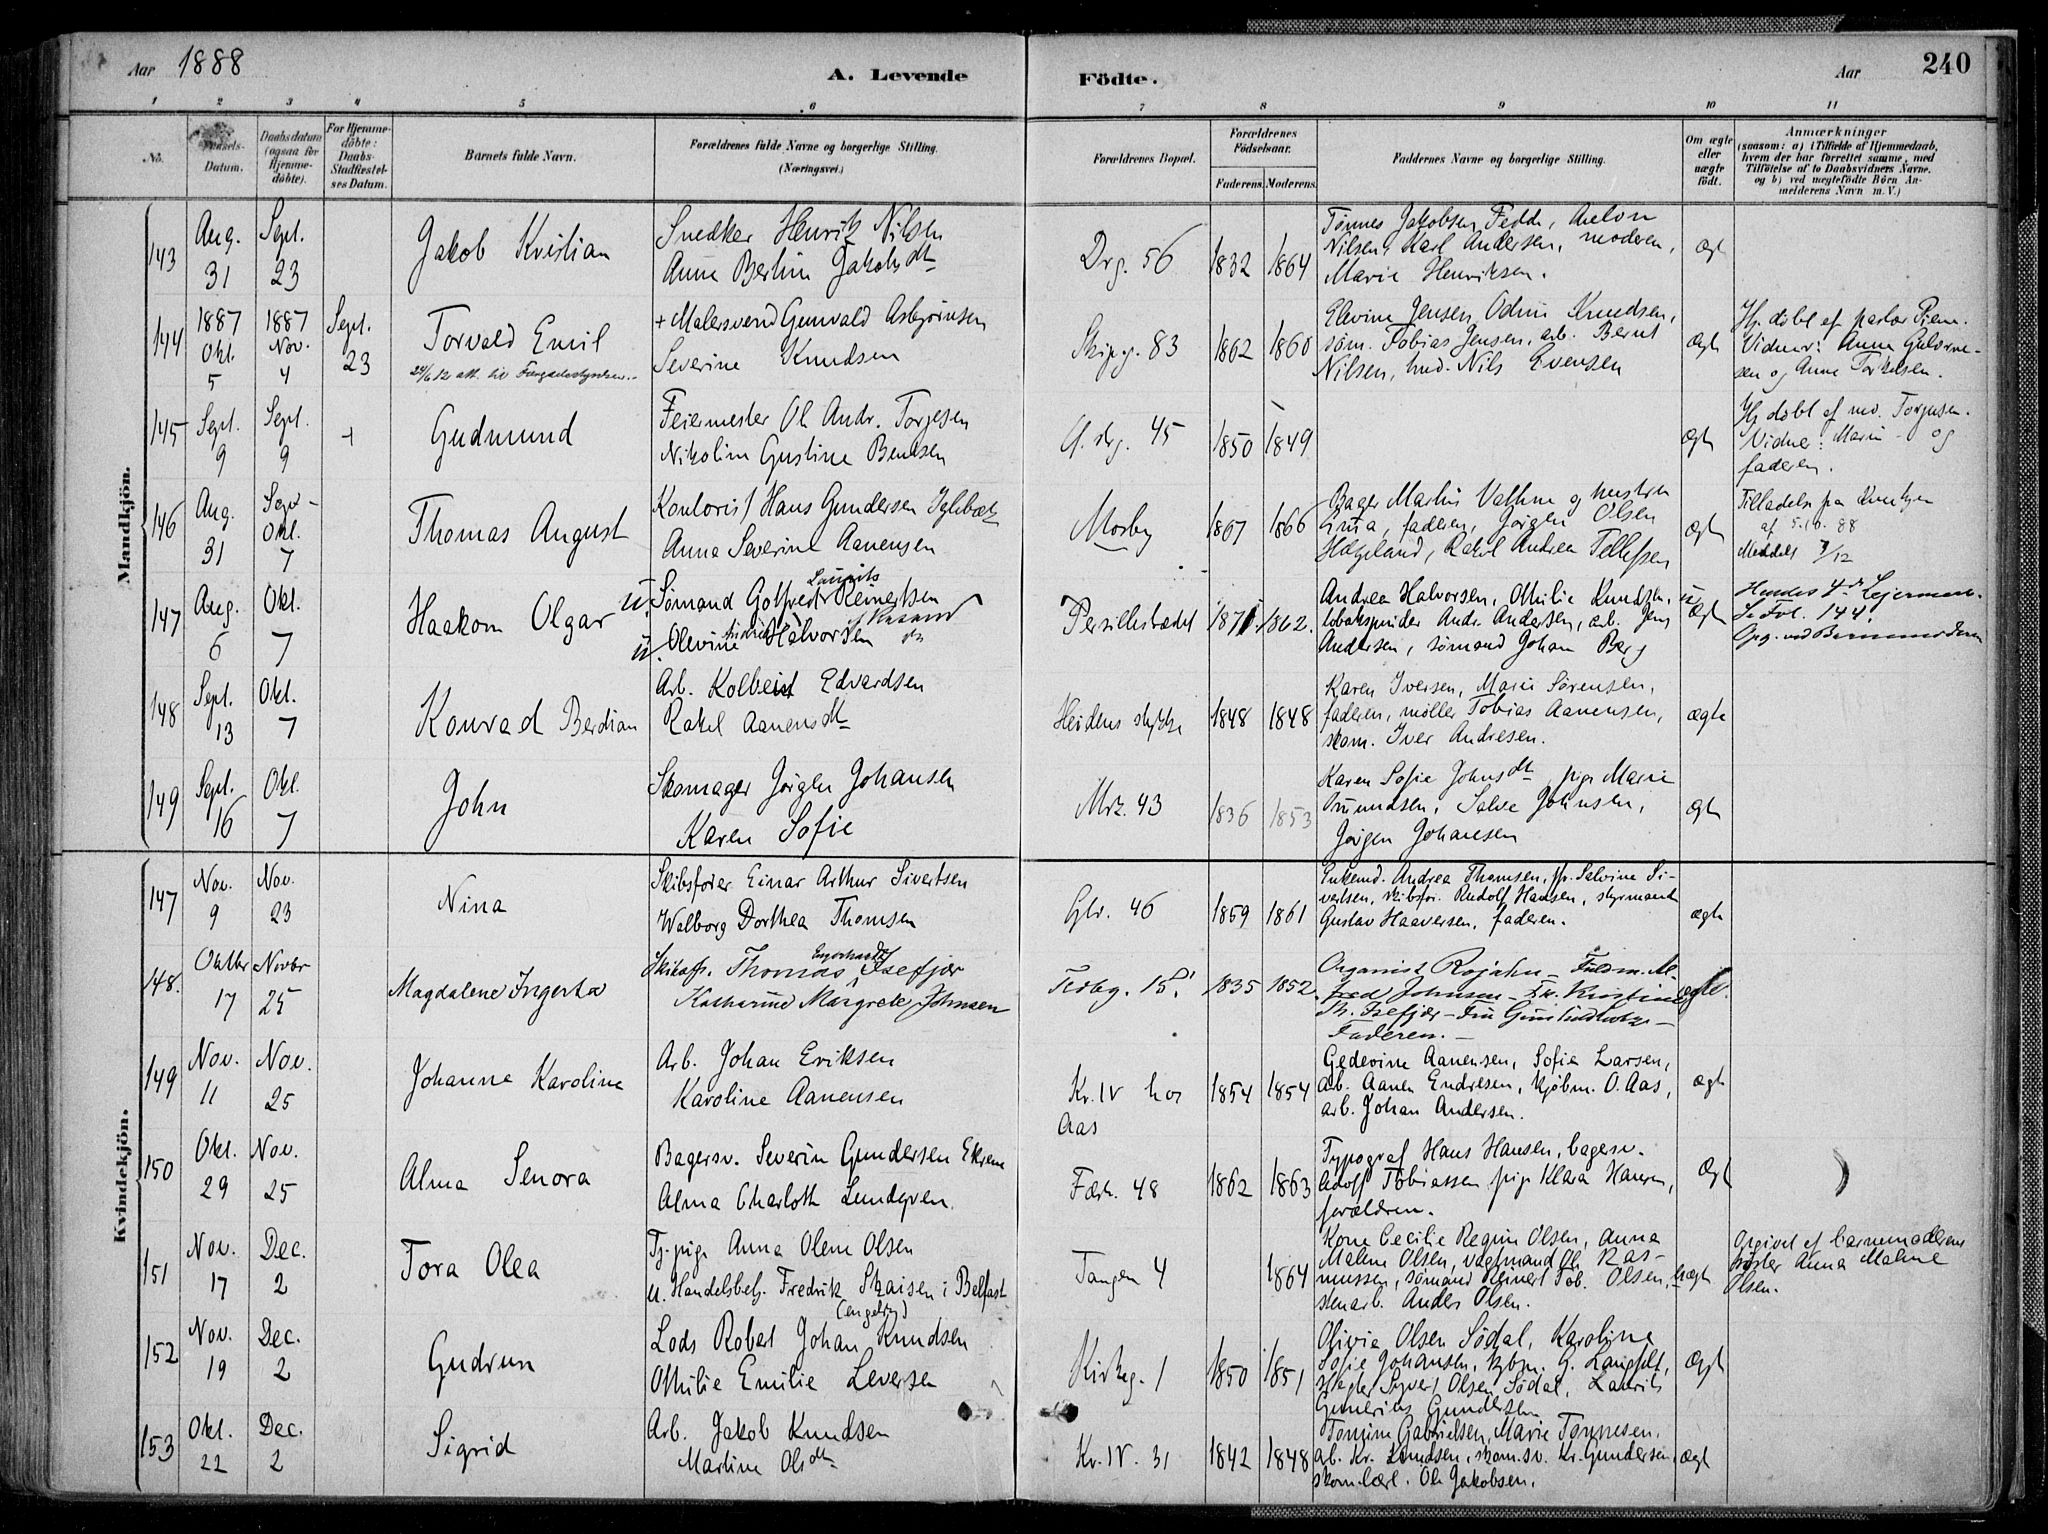 Aar 1888
A. Levende
Födte.
Aar
240
1 2 3 4 5 6 7 8 9 10 11
No.
Datum.
Daabsdatum
(ogsaa for
Hjemme-
döbte).
For Hjemme-
döbte:
Daabs-
Stadfæstel-
ses Datum.
Barnets fulde Navn.
Forældrenes fulde Navne og borgerlige Stilling.
(Næringsvei.)
Forældrenes Bopæl.
Forældrenes
Födselsaar.
Faderens. Moderens.
Faddernes Navne og borgerlige Stilling.
Om ægte
eller
uægte
födt.
Anmærkninger
(saasom: a) i Tilfælde af Hjemmedaab,
hvem der har forrettet samme, med
Tilföielse af to Daabsvidners Navne.
og b) ved uægtefödte Börn An-
melderens Navn m. V.)
Mandkjön.
143
Aug.
31
Sept.
23
Jakob Kristian
Snedker Henrik Nilsen
Anne Bertine Jakobsdt
Drg. 56
1832
1864
Tønnes Jakobsen Fedde, Anton
Nilsen, Karl Andersen, moderen,
Marie Henriksen.
ægt
144
1887
Okt.
5
1887
Nov.
4
Sept.
23
Torvald Emil
+ Malersvend Gunvald Asbjørnsen
Severine Knudsen
Skipg. 83
1862
1860
Elevine Jensen, Odine Knudsen,
søm. Tobias Jensen, arb. Bernt
Nilsen, hmd. Nils Evensen
ægt
Hj. døbt af
Vidner: Anna
sen og Anne Torkelsen.
145
Sept.
9
Sept.
9
+
Gudmund
Feiermester Ol. Andr. Torjesen
Nikoline Gustine Bentsen
45
1850
1849
ægt
Hj. døbt af
Vidner: Marie - og
faderen.
146
Aug.
31
Sept-
Okt.
7
Thomas August
Kontorist Hans Gundersen Iglebæk
Anna Severine Aanensen
Mosby
1867
1866
Bager Martin Vathne og hustru
faderen, Jørgen Olsen
Hægeland, Rakel Andrea Tellefsen
ægt
Tilladelse fra
af 5.10.88
Meddelt 7/12
147
Aug.
6
Okt.
7
Haakon Olgar
u. Sømand Gotfred Laurits Reinertsen
u. Olevine Halvorsen
1871
1862.
Andrea Halvorsen, Othilie Knudsen,
tobakspinder Andr. Andersen, arb. Jens
Andersen, sømand Johan Berg
u
ægt
Hendes 4de Lejermaal.
Se Fol. 144.
Opg. ved Barnemoderen
148
Sept.
13
Okt.
7
Konrad Berdian
Arb. Kolbeint Edvardsen
Rakel Aanensdt
Heidens stykke
1848
1848
Karen Iversen, Marie Sørensen,
faderen, møller Tobias Aanensen,
skom. Iver Andresen.
ægte
149
Sept.
16
Okt.
7
John
Skomager Jørgen Johansen
Karen Sofie
Mrz. 43
1836
1853
Karen Sofie Johnsdt, pige Marie
Salve Johnsen,
Jørgen Johansen
ægt
Kvindekjön.
147
Nov.
9
Nov.
23
Nina
Skibsfører Einar Arthur Sivertsen
Walborg Dorthea Thomsen
Glv. 46
1859
1861
Enkemd. Andrea Thomsen, fr. Salvine Si-
vertsen, skibsfør. Rudolf Hansen, styrmand
Gustav Haaversen, faderen.
ægte
148.
Oktbr
17
Novbr
25
Magdalene Ingerta
Skibsfr. Thomas Isefjær
Katharine Margrete Johnsen
15.
1835
1852.
Organist Rojahn - Fuldm. Al-
fred Johnsen - Frk. Kristine
Th. Isefjær -
Faderen.-
149
Nov.
11
Nov.
25
Johanne Karoline
Arb. Johan Eriksen
Karoline Aanensen
Kr. IV hos
Aas
1854
1854
Gedevine Aanensen, Sofie Larsen,
arb. Aanen Endresen, kjøbm. O. Aas,
arb. Johan Andersen.
ægt
150
Okt.
29
Nov.
25
Alma Senora
Bagersv. Severin Gundersen Ekrene
Alma Charloth Lundqven.
Fæst. 48
1862
1863
Typograf Hans Hansen, bagersv.
Adolf Tobiassen pige Klara Hansen,
forældren.
Ægt
151
Nov.
17
Dec.
2
Tora Olea
Tj.pige Anna Olene Olsen
u. Handelsbetj. Fredrik Skaisen i Belfast
(engelsk)
Tangen 4
1864
Kone Cecilie Regine Olsen, Anna
Malene Olsen, vægtmand Ol. Ras-
mussen, sømand Reinert Tob. Olsen,
stenarb. Anders Olsen.
uægt
Opgivet af barnemoderens
søster Anna Malene
Olsen.
152
Nov.
19
Dec.
2
Gudrun
Lods Robert Johan Knudsen
Othilie Emilie Leversen
Kirkeg. 1
1850
1851
Olivia Olsen Sødal, Karoline
Sofie Johansen, kjbm. G. Langfelt,
slagter Syvert Olsen Sødal, Laurits
Gunerius Gundersen
Ægt
153
Okt.
22
Dec.
2
Sigrid
Arb. Jakob Knudsen
Martine Olsdt
Kr. IV. 31
1842
1848
Tomine Gabrielsen, Marie Tønnesen,
arb. Kr. Knudsen, skom.sv. Kr. Gundersen,
skom.lærl. Ole Jakobsen.
ægt